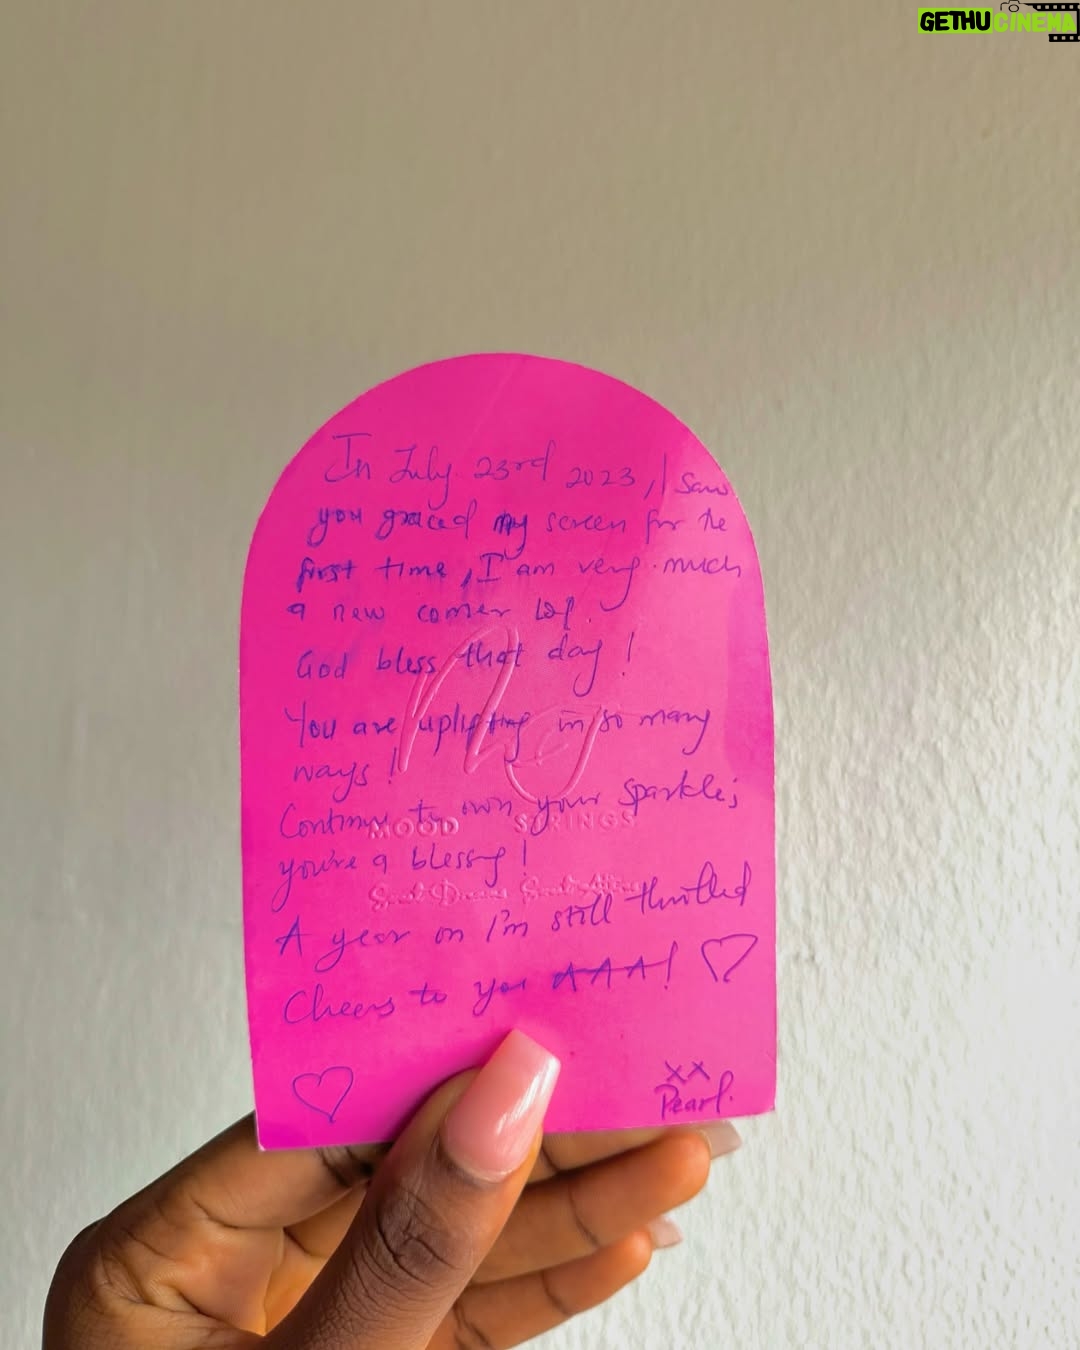 GETHUCINEMA
In July 23rd 2023, I saw
you graced my screen for the
first time, I am very much
a new comer lol.
God bless that day!
You are uplifting in so many
ways!
Continue to own your sparkle;
MOOD STRINGS
you're a blessing!
A year on I'm still thrilled
Cheers to you AAA!
xx
Pearl.